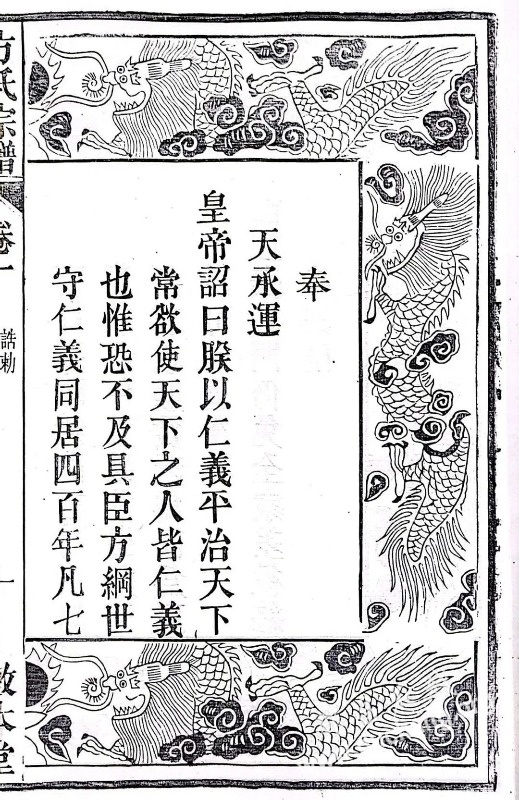 奉
天承運
皇帝詔曰朕以仁義平治天下
常欲使天下之人皆仁義
也惟恐不及具臣方綱世
守仁義同居四百年凡七
方氏宗譜
卷一
誥勅
一
敦本堂